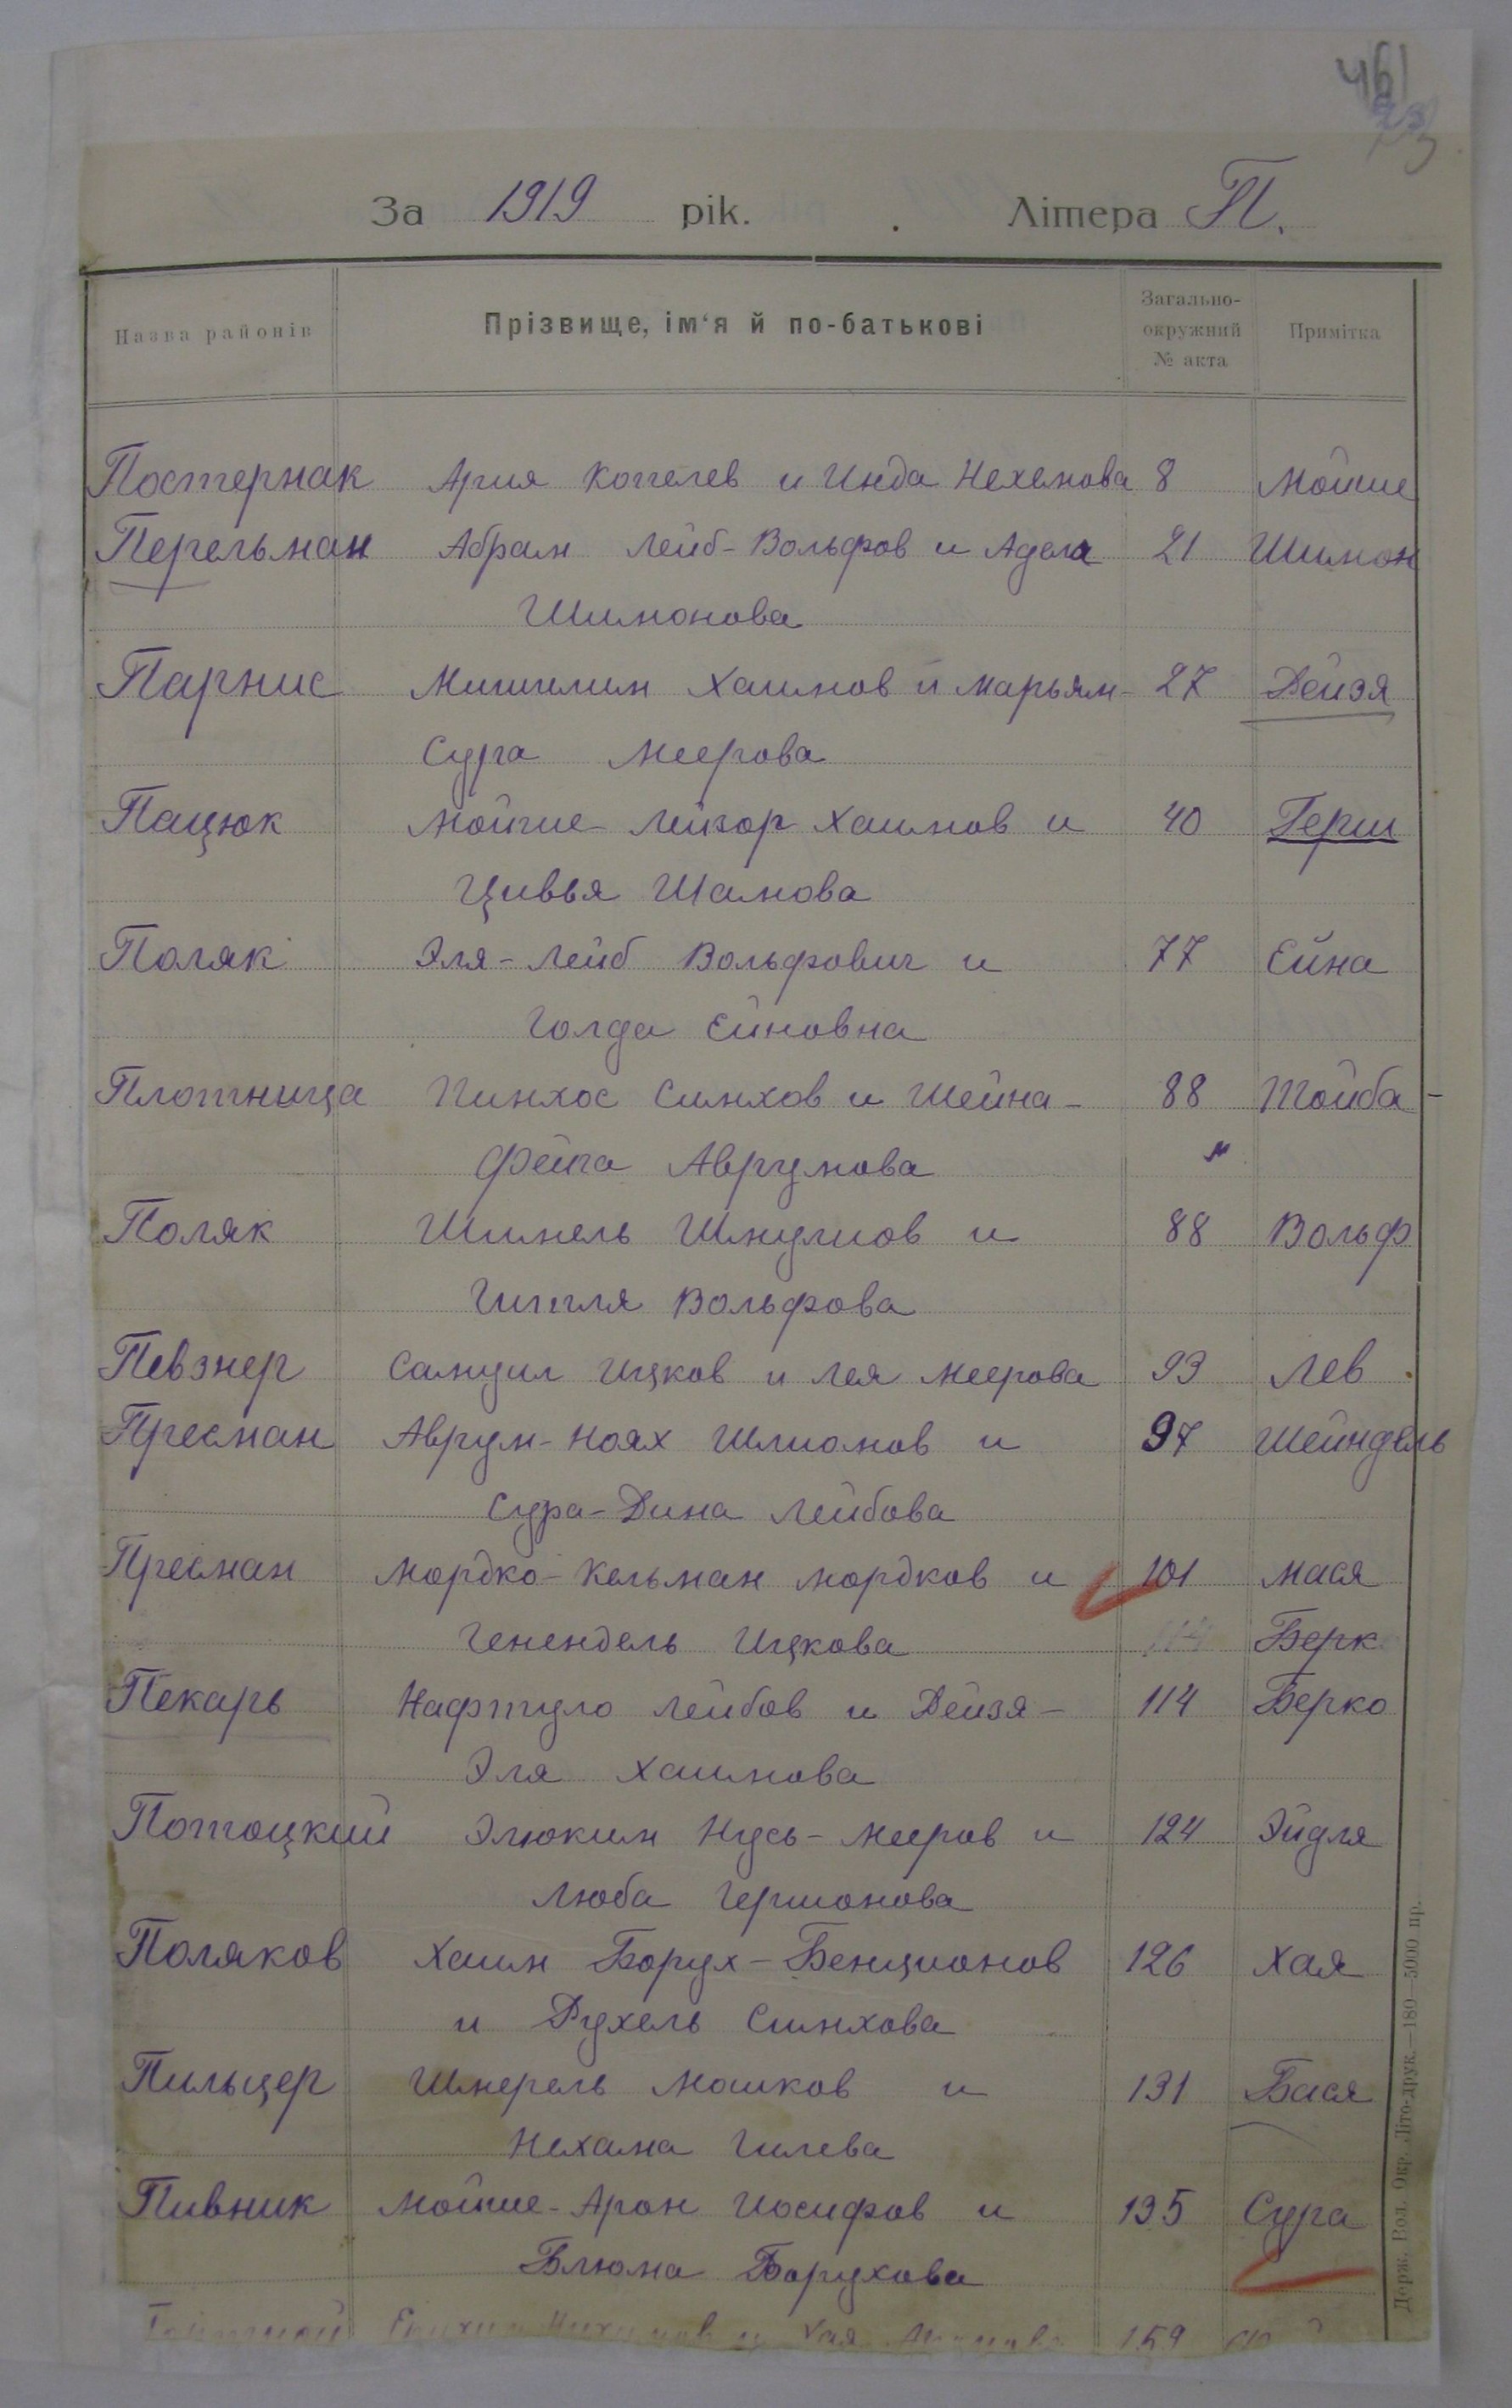 461
За 1919 рік. Літера П.
Назва районів Прізвище, ім‘я й по-батькові Загально-окружний № акта Примітка
Постернак Ария Коппелев и Инда Нехемова 8 Мойше
Перельман Абрам Лейб-Вольфов и Адела 21 Шимон
Шимонова
Парнис Мишилим Хаимов и Марьям- 27 Дейзя
Сура Меерова
Пацюк Мойше-Лейзор Хаимов и 40 Герш
Цивья Шамова
Поляк Эля-Лейб Вольфович и 77 Ейна
Голда Ейновна
Плотница Пинхос Симхов и Шейна- 88 Тойба-
Фейга Аврумова
Поляк Шимель Шмулиов и 88 Вольф
Гитля Вольфова
Певзнер Самуил Ицков и Лея Меерова 93 Лев
Пресман Аврум-Ноях Шлиомов и 97 Шейндель
Сура-Дина Лейбова
Пресман Мордко-Кельман Мордков и 101 Мася
Генендель Ицкова 114 Берк
Пекарь Нафтуло Лейбов и Дейзя- 114 Берко
Эля Хаимова
Потоцкий Элюким Нусь-Мееров и 124 Эйдля
Люба Гершонова
Поляков Хаим Борух-Бенционов 126 Хая
и Рухель Симхова
Пильцер Шмерель Мошков и 131 Бася
Нехама Гилева
Пивник Мойше-Арон Иосифов и 135 Сура
Блюма Борухова
и Хая 159
Держ. Вол. Окр. Літо-друк.—180—5000 пр.